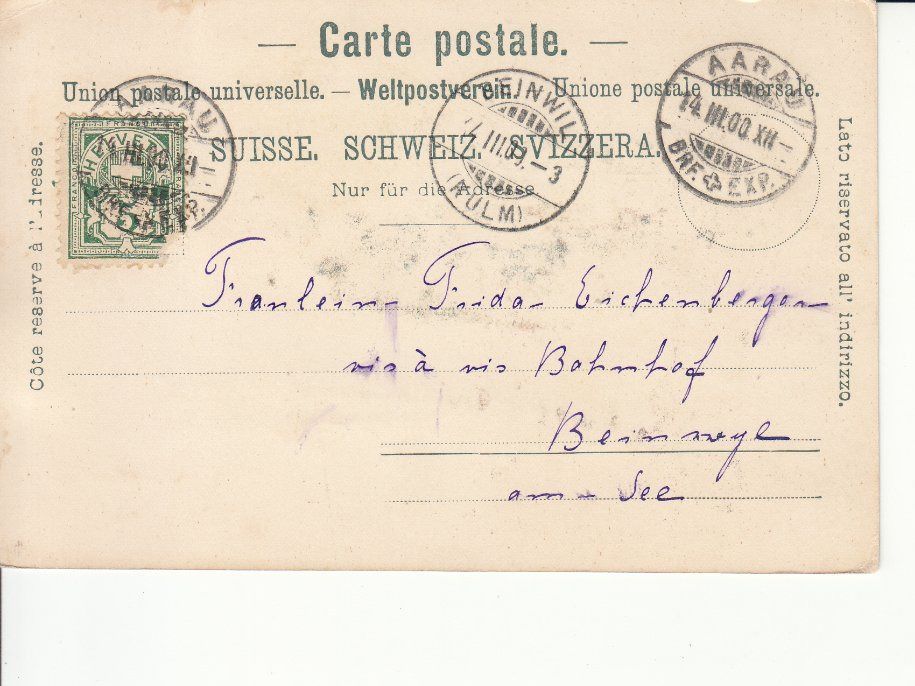 Carte postale.
Union postale universelle. — Weltpostverein. — Unione postale universale.
SUISSE. SCHWEIZ. SVIZZERA.
Nur für die Adresse.
Côte reserve à l'adresse.
Lato riservato all' indirizzo.
AARAU
HELVETIA
FRANCO
5
BEINWIL
(KULM)
AARAU
14 III.00 XII
BRF EXP.
Fraulein Frida Eichenberger
vis à vis Bahnhof
Beinwyl
am See